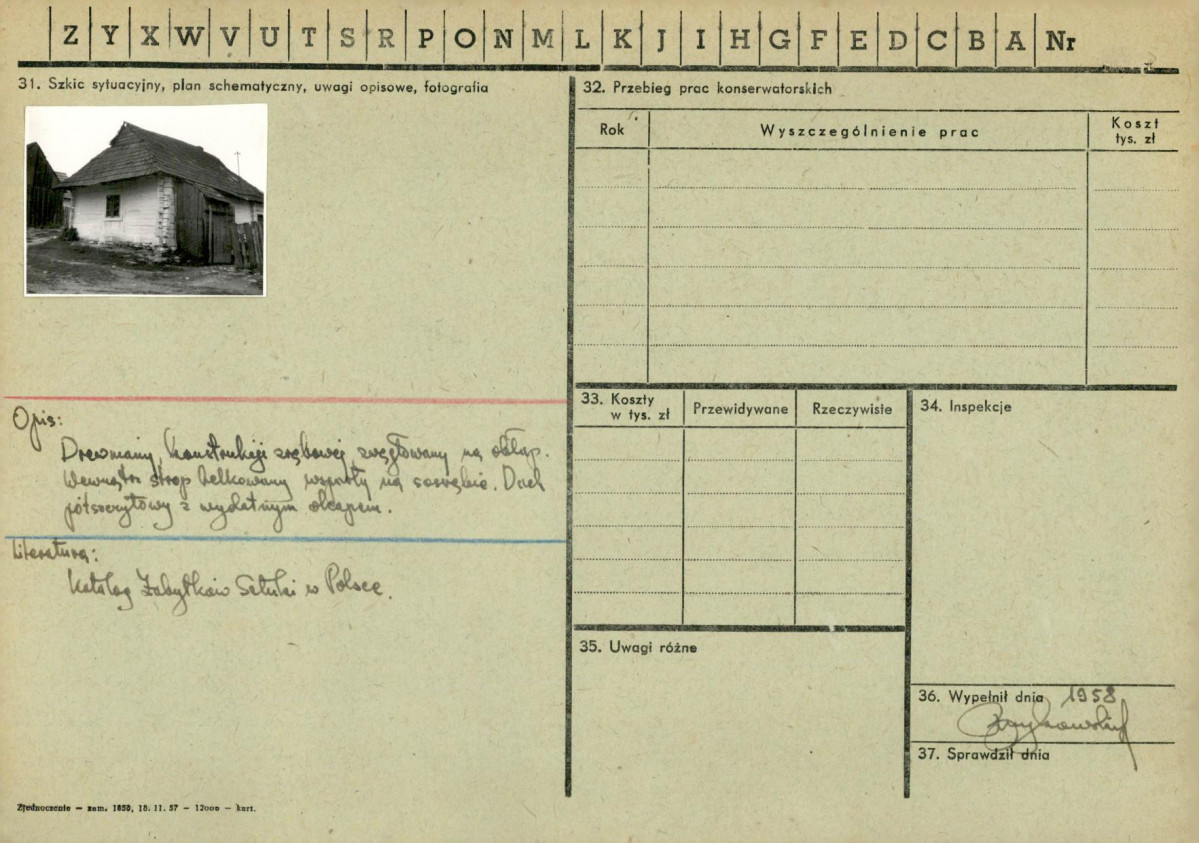 Z Y X W V U T S R P O N M L K J I H G F E D C B A Nr
31. Szkic sytuacyjny, plan schematyczny, uwagi opisowe, fotografia
Opis:
Drewniany, konstrukcji zrębowej zwęgłowany na obłap.
Wewnątrz strop belkowany wsparty na sosrębie. Dach
półszczytowy z wydatnym okapem.
Literatura:
Katalog Zabytków Sztuki w Polsce.
Zjednoczenie — zam. 1850, 18. 11. 57 — 12000 — kart.
32. Przebieg prac konserwatorskich
Rok Wyszczególnienie prac Koszt tys. zł
33. Koszty w tys. zł Przewidywane Rzeczywiste
34. Inspekcje
35. Uwagi różne
36. Wypełnił dnia 1958
37. Sprawdził dnia